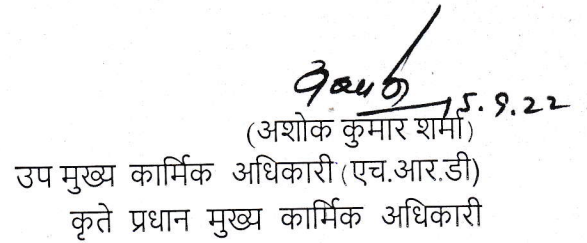 15.9.22
(अशोक कुमार शर्मा)
उप मुख्य कार्मिक अधिकारी(एच.आर.डी)
कृते प्रधान मुख्य कार्मिक अधिकारी